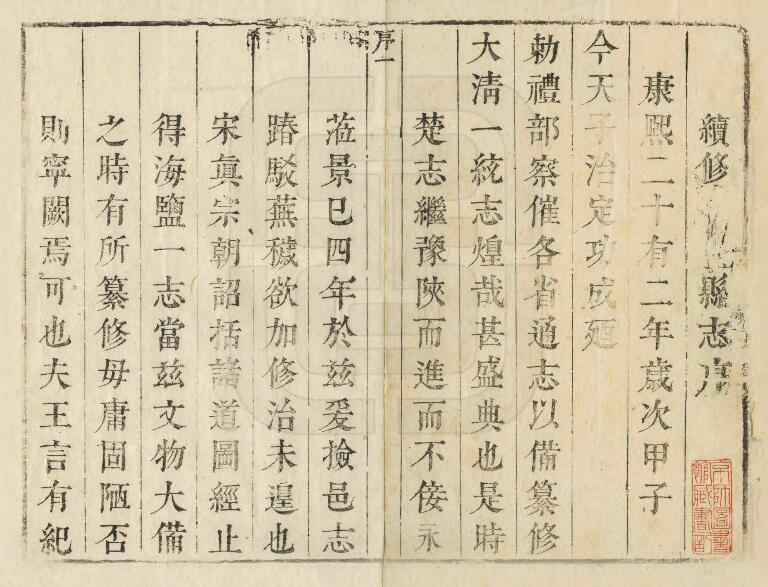 續修縣志序
康熙二十有二年歲次甲子
今天子治定功成廼
勅禮部察催各省通志以備纂修
大清一統志煌哉甚盛典也是時
楚志繼豫陝而進而不佞永
序一
蒞景已四年於兹爰撿邑志
踳駁蕪穢欲加修治未遑也
宋眞宗朝詔括諸道圖經止
得海鹽一志當兹文物大備
之時有所纂修毋庸固陋否
則寧闕焉可也夫王言有紀
京師圖書
館藏書印